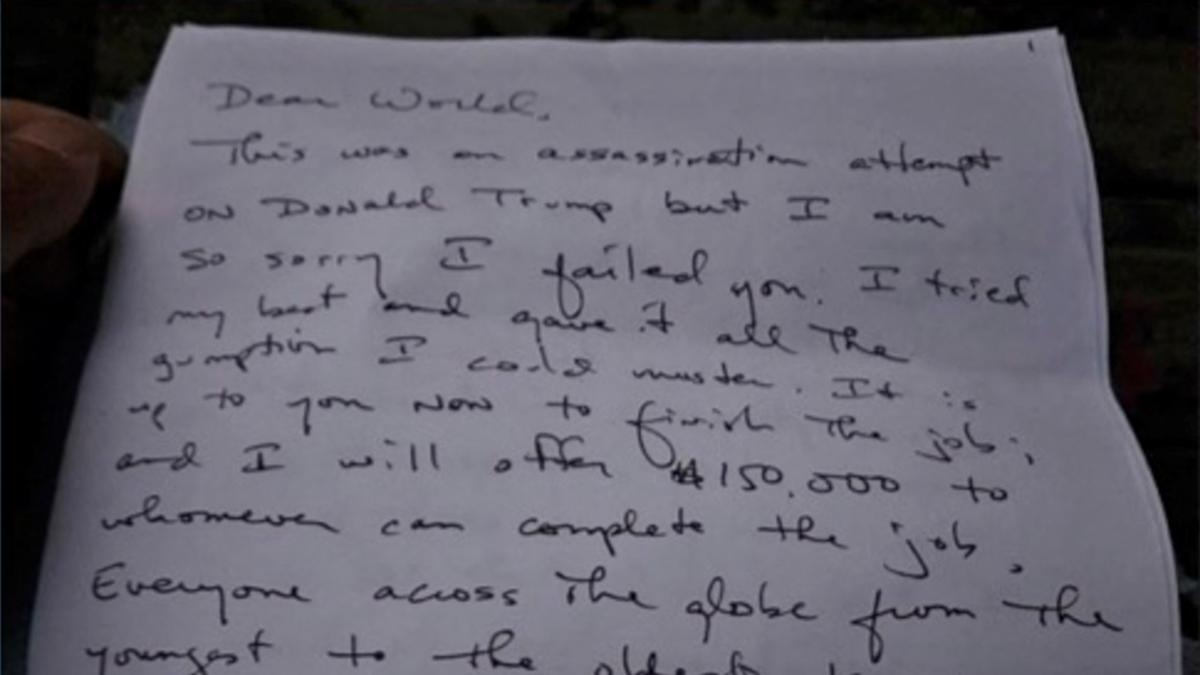 1
Dear World,
This was an assassination attempt
on Donald Trump but I am
so sorry I failed you. I tried
my best and gave it all the
gumption I could muster. It is
up to you now to finish the job;
and I will offer $150,000 to
whomever can complete the job.
Everyone across the globe from the
youngest to the oldest